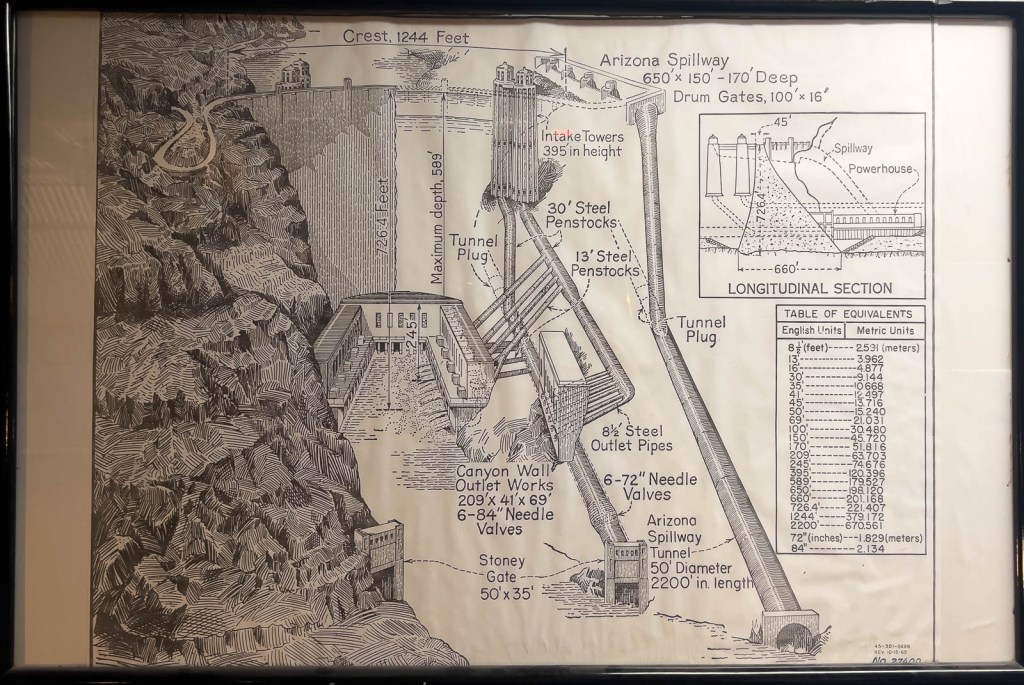 Crest, 1244 Feet
Arizona Spillway
650' x 150' - 170' Deep
Drum Gates, 100' x 16"
Intake Towers
395' in height
726.4 Feet
Maximum depth, 589'
30' Steel
Penstocks
Tunnel
Plug
13' Steel
Penstocks
245'
Tunnel
Plug
8½' Steel
Outlet Pipes
Canyon Wall
Outlet Works
209' x 41' x 69'
6-84" Needle
Valves
6-72" Needle
Valves
Arizona
Spillway
Tunnel
50' Diameter
2200' in length
Stoney
Gate
50' x 35'
45'
Spillway
Powerhouse
726.4'
660'
LONGITUDINAL SECTION
TABLE OF EQUIVALENTS
English Units Metric Units
8½' (feet) ----- 2.591 (meters)
13' ----- 3.962
16' ----- 4.877
30' ----- 9.144
35' ----- 10.668
41' ----- 12.497
45' ----- 13.716
50' ----- 15.240
69' ----- 21.031
100' ----- 30.480
150' ----- 45.720
170' ----- 51.816
209' ----- 63.703
245' ----- 74.676
395' ----- 120.396
589' ----- 179.527
650' ----- 198.120
660' ----- 201.168
726.4' ----- 221.407
1244' ----- 379.172
2200' ----- 670.561
72" (inches) --- 1.829 (meters)
84" ----- 2.134